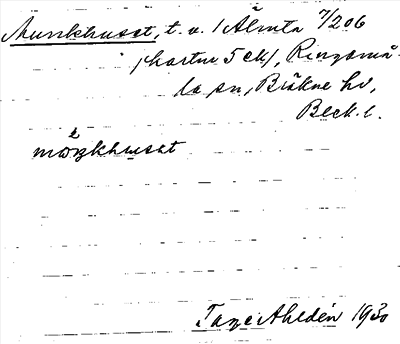 Munkhuset, t. v. 1 Älmta 7/206
(kartan 5 ck), Ringamå-
la sn, Bräkne hd,
Blek. l.
måŋkhuset
Tage Ahldén 1930